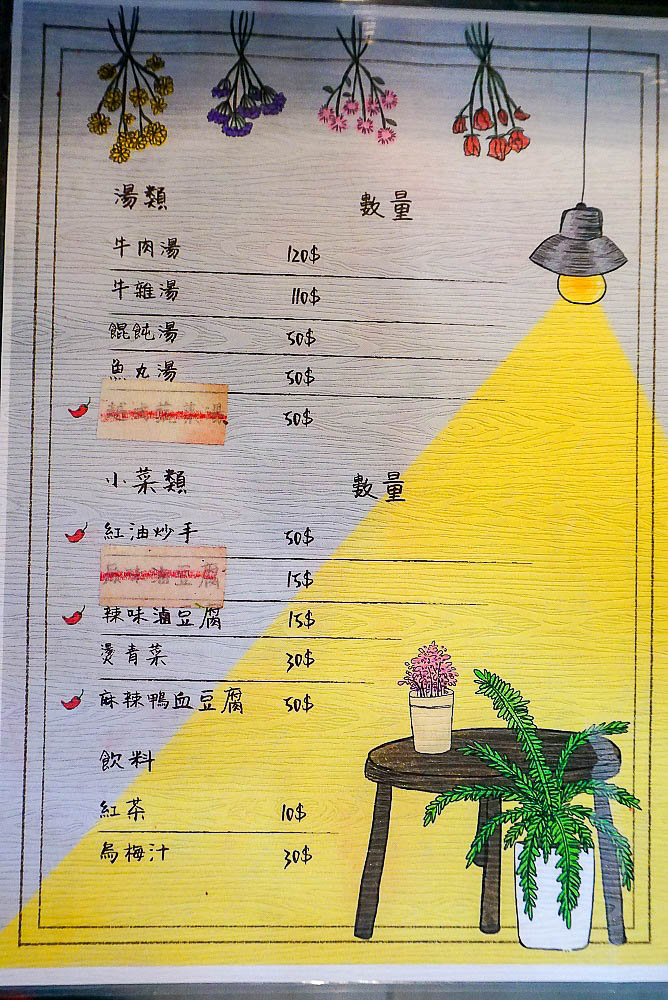 湯類 數量
牛肉湯 120$
牛雜湯 110$
餛飩湯 50$
魚丸湯 50$
50$
小菜類 數量
紅油炒手 50$
味滷豆腐 15$
辣味滷豆腐 15$
燙青菜 30$
麻辣鴨血豆腐 50$
飲料
紅茶 10$
烏梅汁 30$